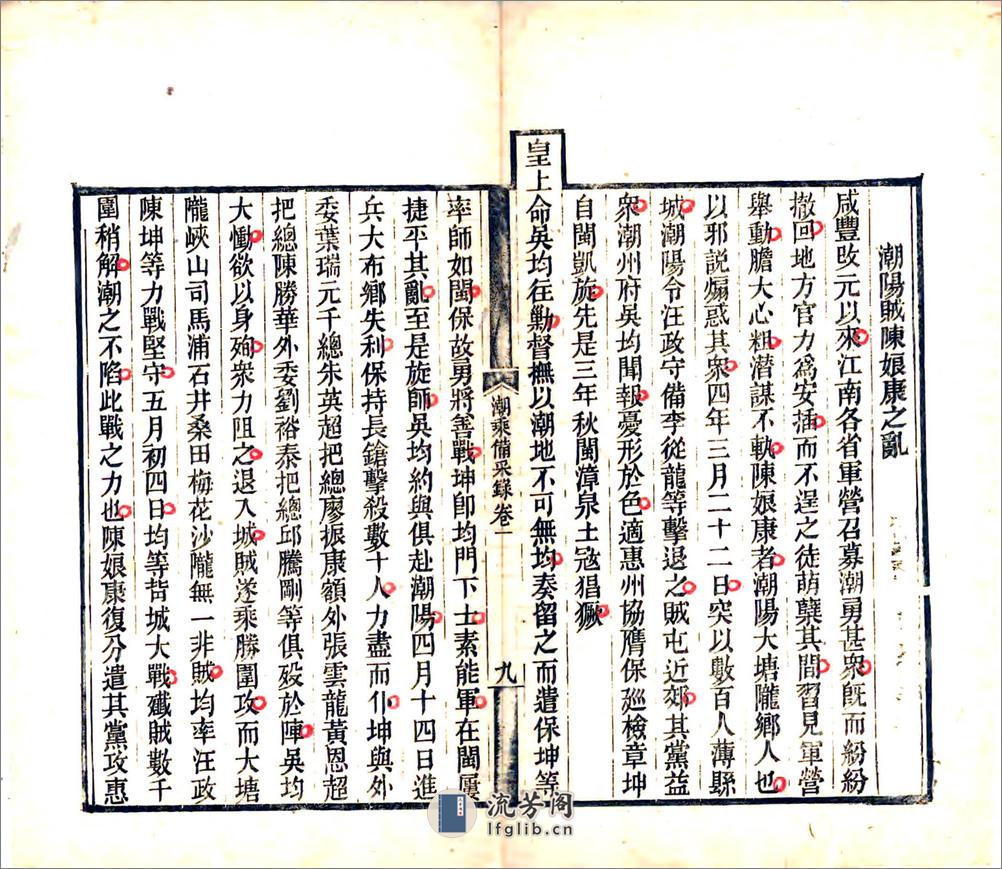 潮陽賊陳娘康之亂
咸豐改元以來江南各省軍營召募潮勇甚衆旣而紛紛
撤回地方官力爲安插而不逞之徒萌櫱其間習見軍營
舉動膽大心粗潛謀不軌陳娘康者潮陽大塘隴鄉人也
以邪說煽惑其衆四年三月二十二日突以數百人薄縣
城潮陽令汪政守備李從龍等擊退之賊屯近郊其黨益
衆潮州府吳均聞報憂形於色適惠州協膺保巡檢章坤
自閩凱旋先是三年秋閩漳泉土寇猖獗
皇上命吳均往勦督撫以潮地不可無均奏留之而遣保坤等
潮乘備采錄 卷一
九
率師如閩保故勇將善戰坤卽均門下士素能軍在閩屢
捷平其亂至是旋師吳均約與俱赴潮陽四月十四日進
兵大布鄉失利保持長鎗擊殺數十人力盡而仆坤與外
委葉瑞元千總朱英超把總廖振康額外張雲龍黃恩超
把總陳勝華外委劉裕泰把總邱騰剛等俱歿於陣吳均
大慟欲以身殉衆力阻之退入城賊遂乘勝圍攻而大塘
隴峽山司馬浦石井桑田梅花沙隴無一非賊均率汪政
陳坤等力戰堅守五月初四日均等背城大戰殲賊數千
圍稍解潮之不陷此戰之力也陳娘康復分遣其黨攻惠
流芳阁
lfglib.cn